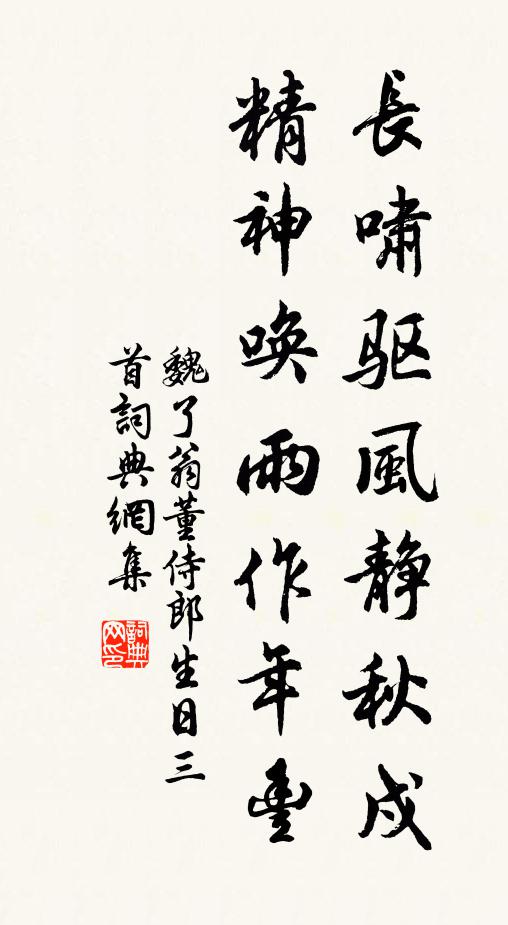 長嘯驱風静秋戍
精神唤雨作年豐
魏了翁董侍郎生日三
首詞典網集
詞典网印